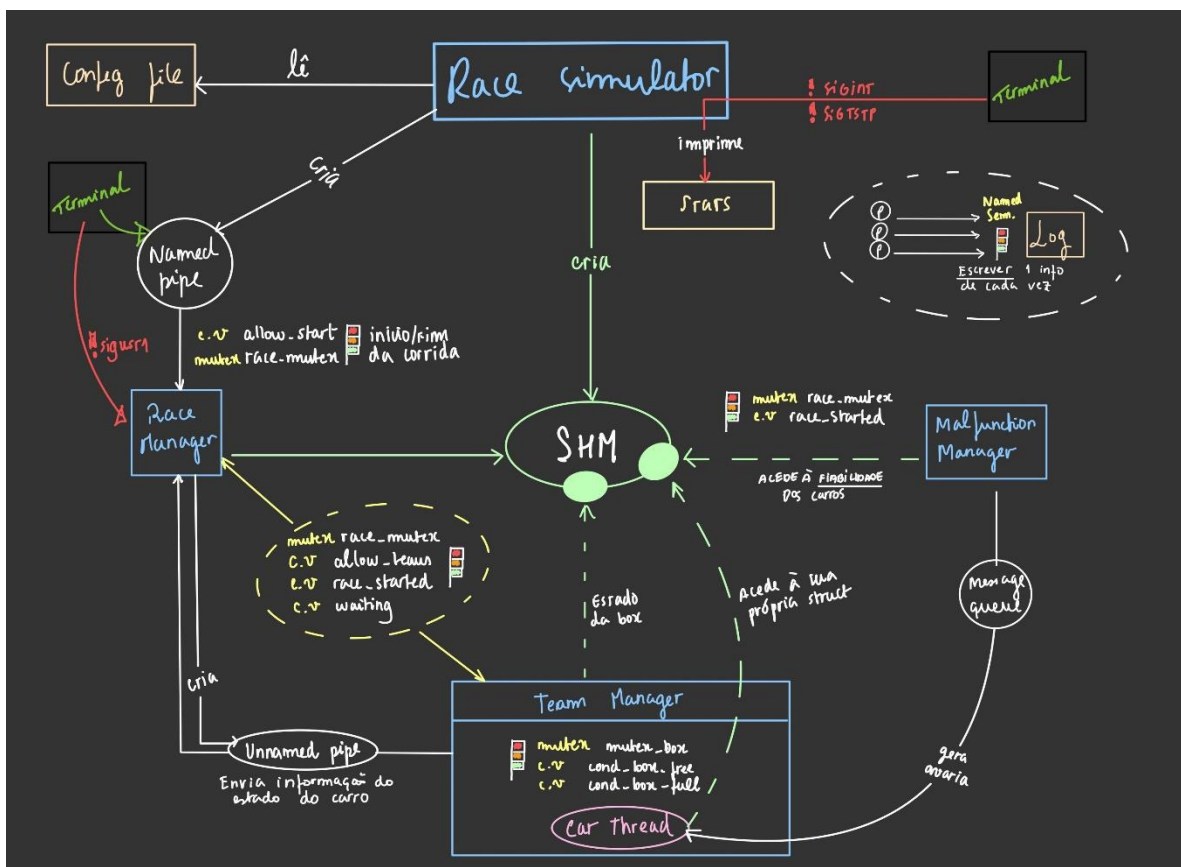 Config file
lê
Race simulator
! SIGINT
! SIGTSTP
Terminal
imprime
Stats
cria
Terminal
Named
pipe
! sigusr1
c.v allow_start início/fim
mutex race_mutex da corrida
cria
P
P
P
Named
Sem.
Log
Escrever 1 info
de cada vez
Race
Manager
SHM
mutex race_mutex
c.v race_started
Malfunction
Manager
ACEDE À FIABILIDADE
DOS CARROS
mutex race_mutex
c.v allow_teams
c.v race_started
c.v waiting
Estado
da box
Acede à sua
própria struct
Message
queue
cria
Unnamed pipe
Envia informação do
estado do carro
Team Manager
mutex mutex_box
c.v cond_box_free
c.v cond_box_full
Car thread
gera
avaria